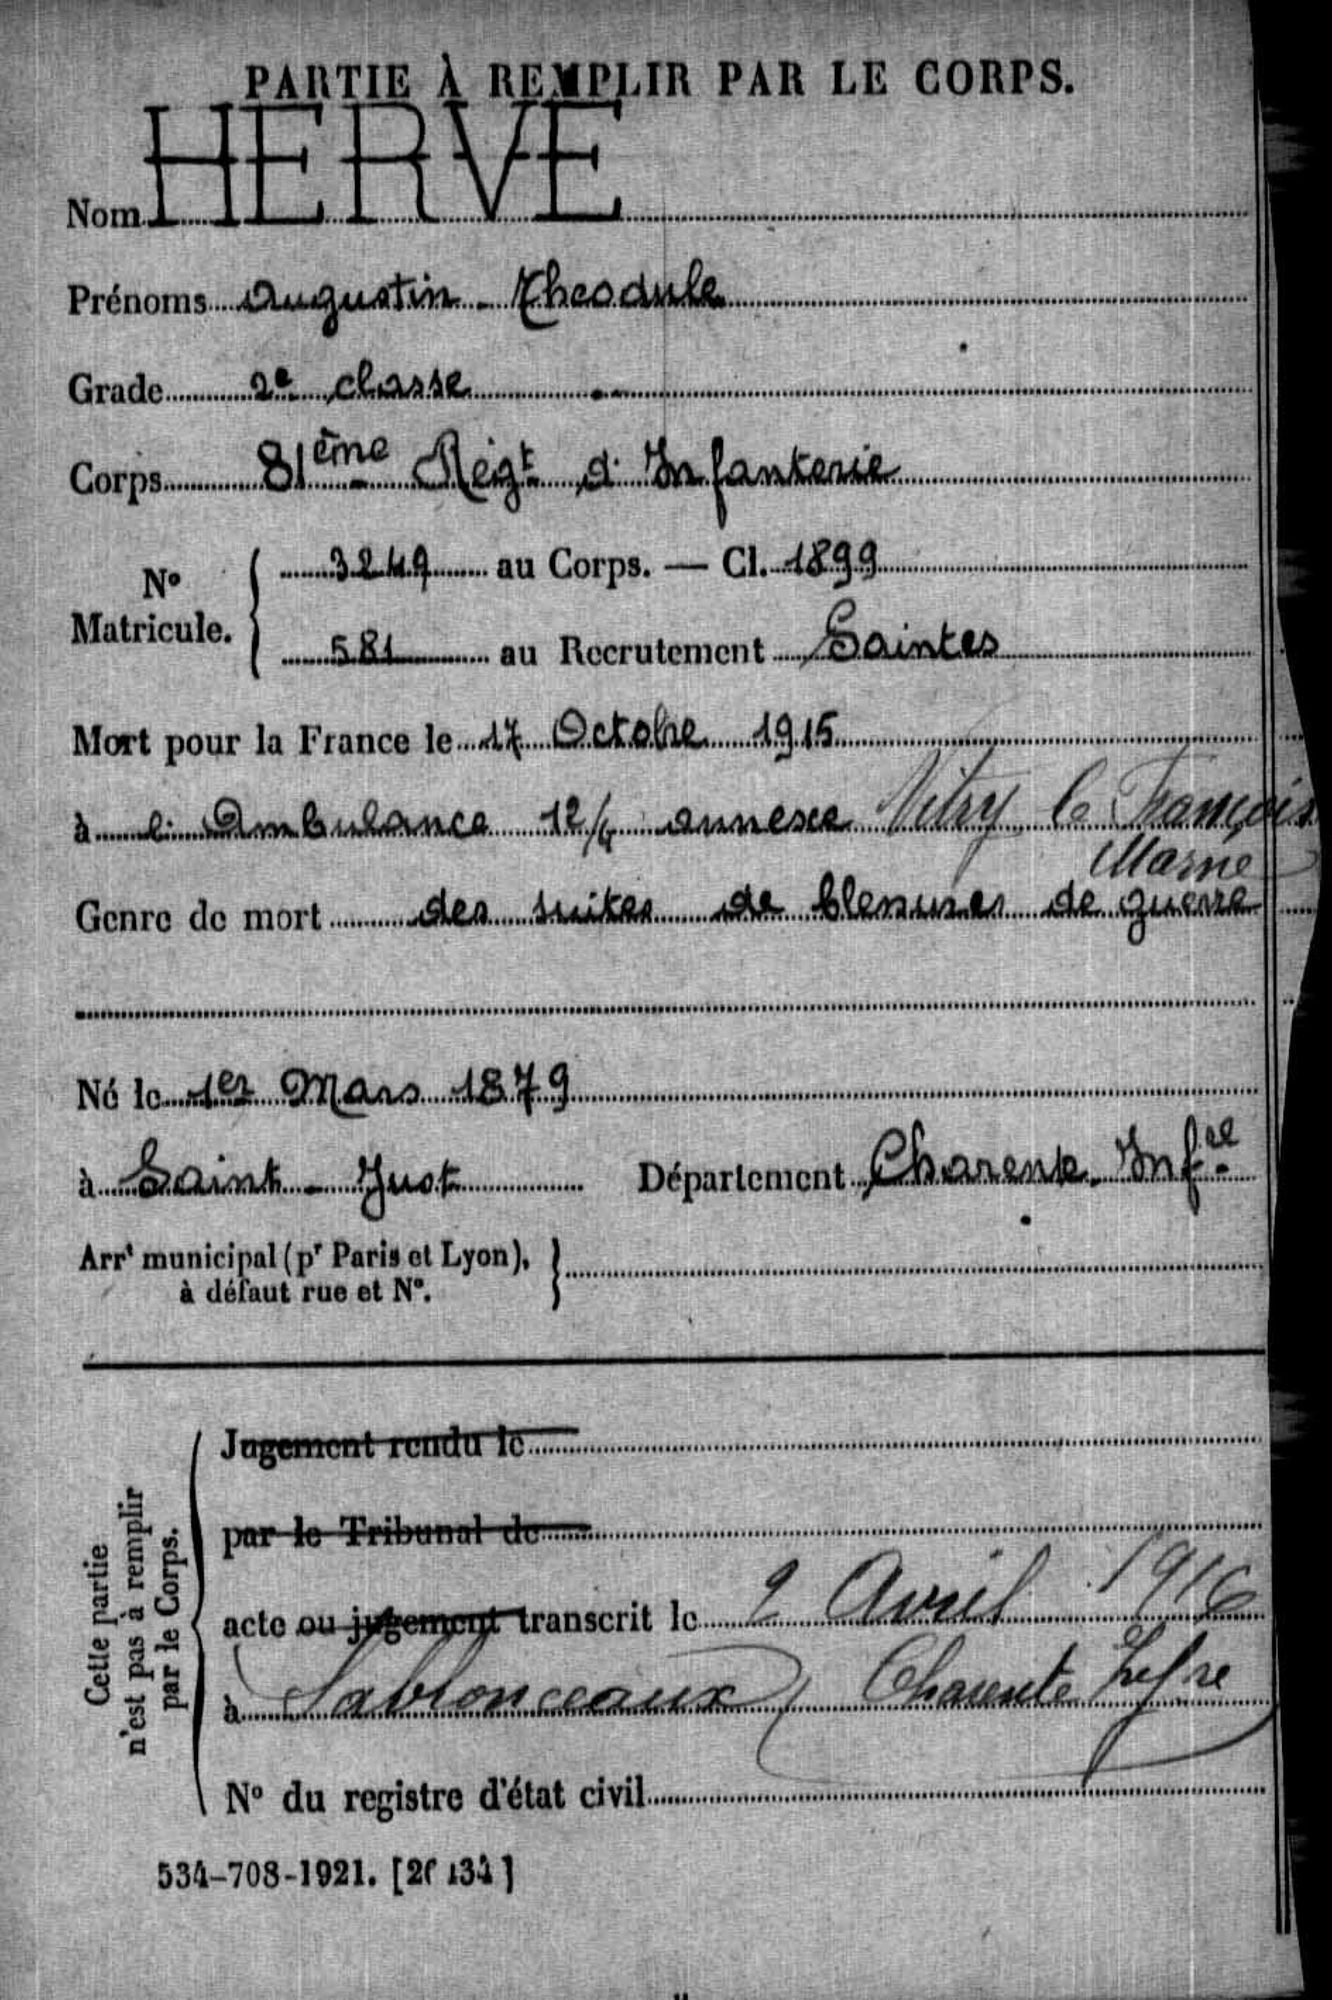 PARTIE À REMPLIR PAR LE CORPS.
Nom HERVE
Prénoms Augustin - Theodule
Grade 2e classe
Corps 81ème Régt d'Infanterie
No Matricule. { 3249 au Corps. — Cl. 1899
581 au Recrutement Saintes
Mort pour la France le 17 Octobre 1915
à l'Ambulance 12/4 annexe Vitry le François
Marne
Genre de mort des suites de blessures de guerre
Né le 1er Mars 1879
à Saint-Just Département Charente Infre
Arrt municipal (pr Paris et Lyon),
à défaut rue et No. }
Cette partie
n'est pas à remplir
par le Corps.
Jugement rendu le
par le Tribunal de
acte ou jugement transcrit le 2 Avril 1916
à Sablonceaux Charente Infre
No du registre d'état civil
534-708-1921. [26134]